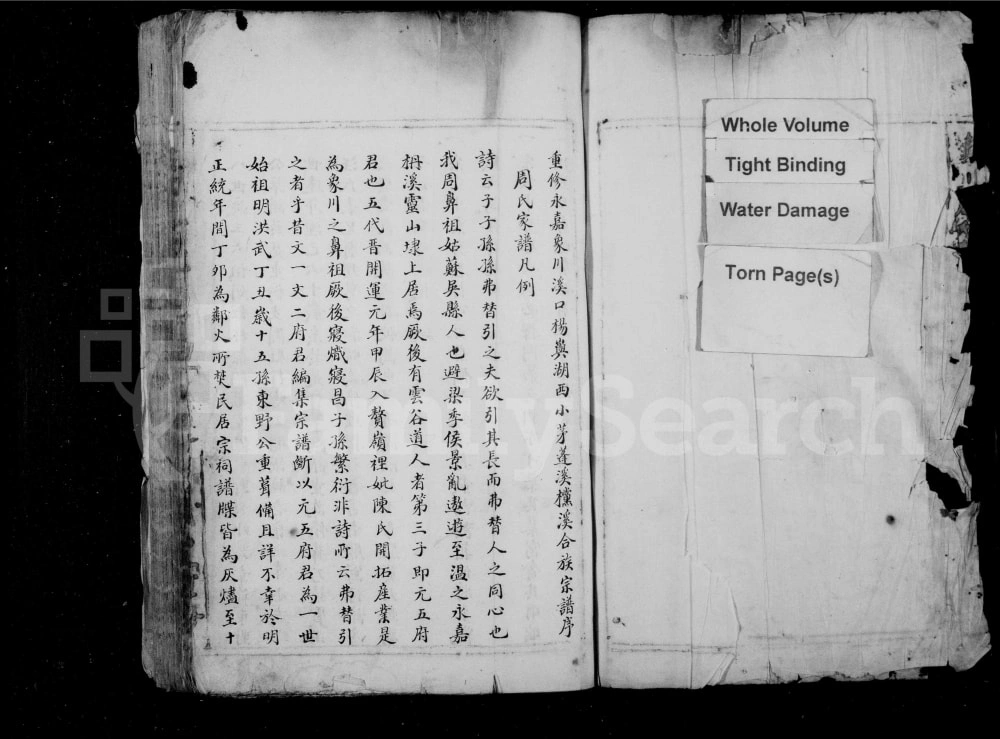 Whole Volume
Tight Binding
Water Damage
Torn Page(s)
重修永嘉象川溪口楊㠘湖西小茅蓬溪欓溪合族宗譜序
周氏家譜凡例
詩云子子孫孫弗替引之夫欲引其長而弗替人之同心也
我周鼻祖姑蘇吳縣人也避梁季侯景亂遨遊至溫之永嘉
枬溪靈山埭上居焉厥後有雲谷道人者第三子即元五府
君也五代晋開運元年甲辰入贅嶺裡妣陳氏開拓産業是
為象川之鼻祖厥後寢熾寢昌子孫繁衍非詩所云弗替引
之者乎昔文一文二府君編集宗譜斷以元五府君為一世
始祖明洪武丁丑歲十五孫東野公重葺備且詳不幸於明
正統年間丁卯為鄰火所焚民居宗祠譜牒皆為灰燼至十
FamilySearch